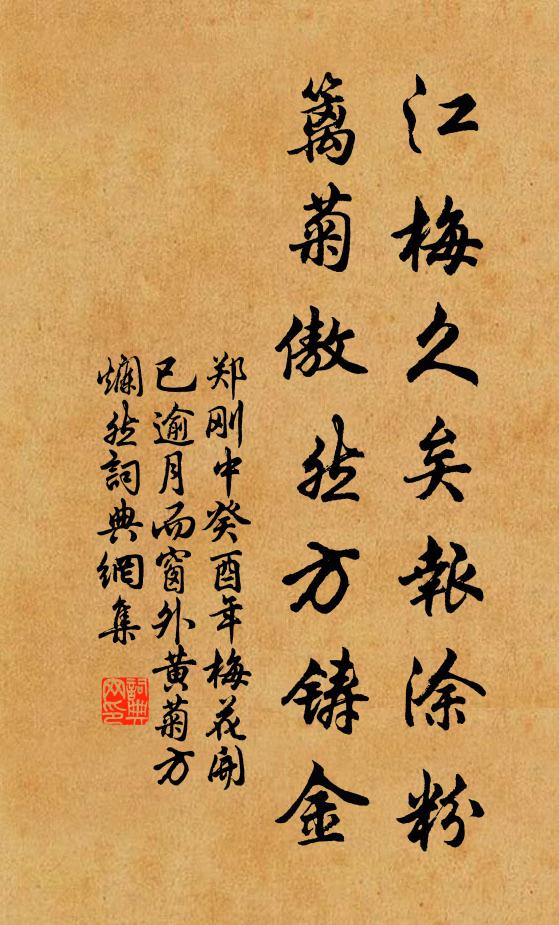 江梅久矣報涂粉
籬菊傲然方鑄金
郑刚中癸酉年梅花開
已逾月而窗外黄菊方
爛然詞典網集
詞典
网印